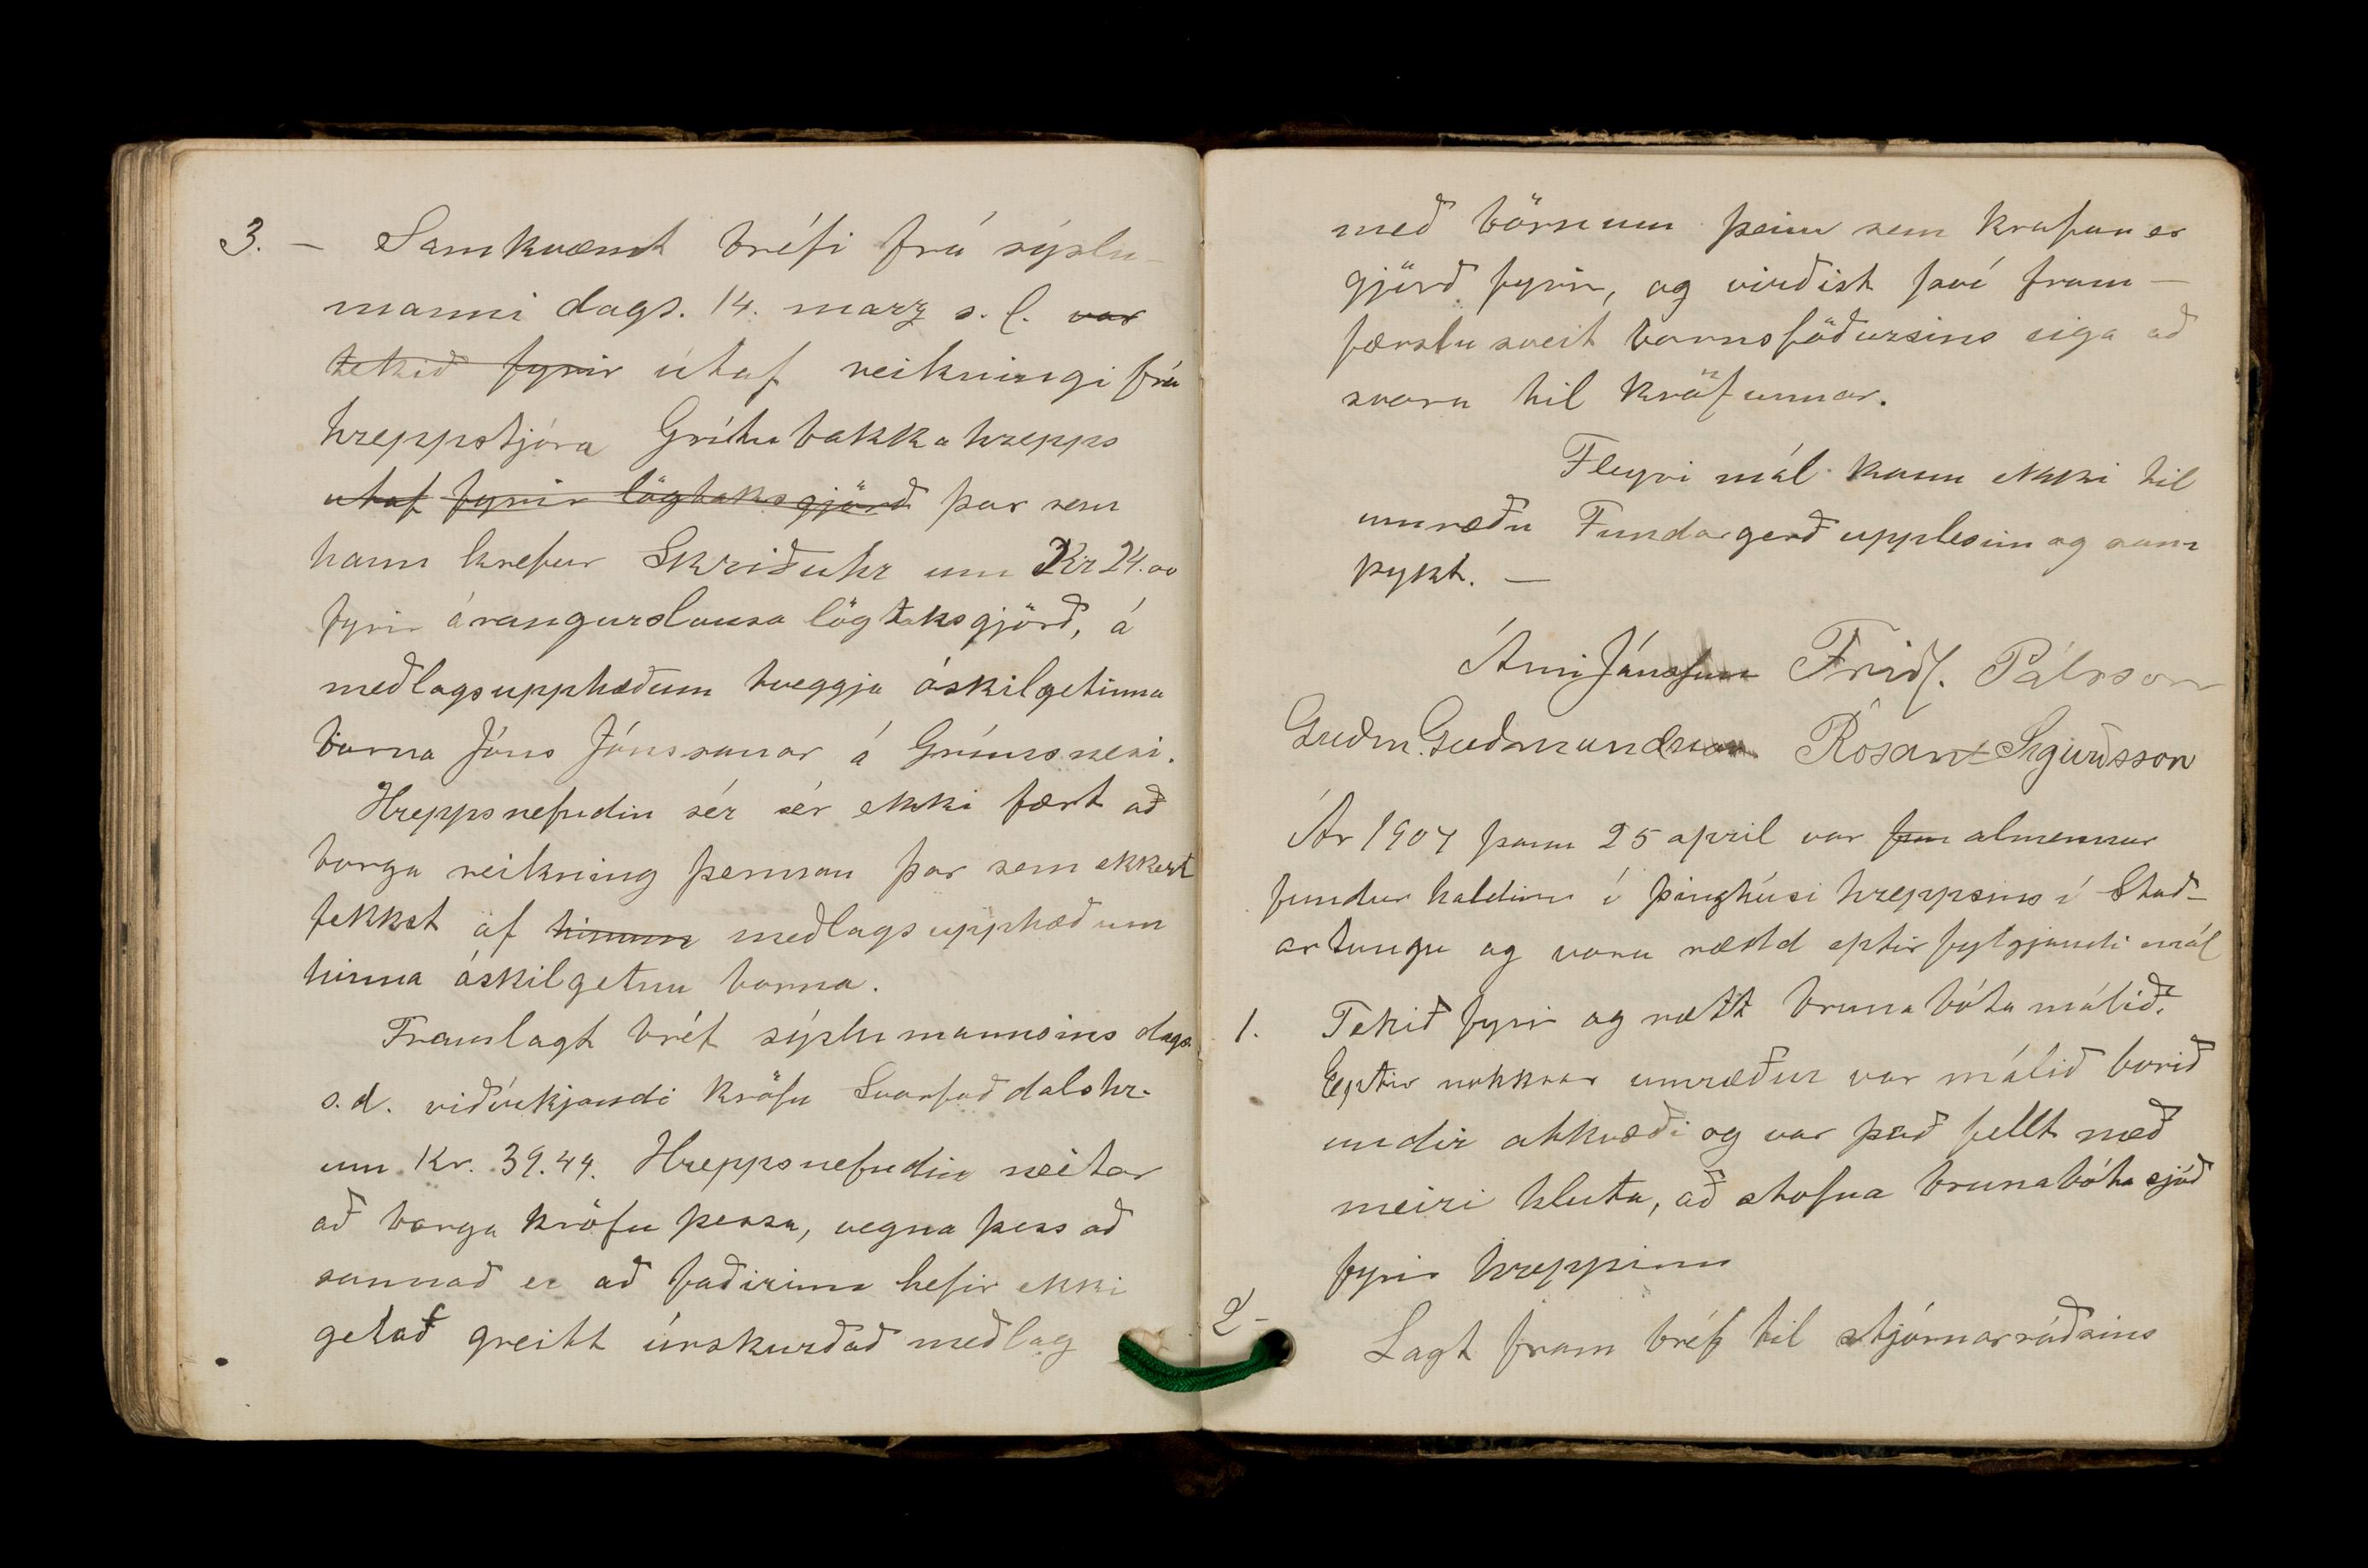 3. – Samkvæmt bréfi frá sýslu-
manni dags. 14. marz s. l. var
tekið fyrir útaf reikningi frá
hreppstjóra Grítubakkahrepps
utaf fyrir lögtaksgjörð þar sem
hann krefur Skriðuhr um Kr 24.00
fyrir árangurslausa lögtaksgjörð, á
meðlagsupphæðum tveggja óskilgetinna
barna Jóns Jónssonar á Grímsnesi.
Hreppsnefndin sér sér ekki fært að
borga reikning þennan þar sem ekkert
fekkst af hinum meðlagsupphæðum
hinna óskilgetnu barna.
Framlagt bréf sýslumannsins dags.
s.d. viðvíkjandi kröfu Svarfaðdalshr.
um Kr. 39.44. Hreppsnefndin neitar
að borga kröfu þessa, vegna þess að
sannað er að faðirinn hefir ekki
getað greitt úrskurðað meðlag
með börnum þeim sem krafan er
gjörð fyrir, og virðist því fram-
færslusveit barnsföðursins eiga að
svara til kröfunnar.
Fleyri mál komu ekki til
umræðu Fundargerð upplesin og sam
þykt. –
Árni Jónsson Friðf. Pálsson
Guðm. Guðmundsson Rósant Sigurðsson
Ár 1907 þann 25 april var fun almennur
fundur haldinn í þinghúsi hreppsins í Stað-
artungu og voru rædd eptir fylgjandi mál
1. Tekið fyrir og rætt brunabótamálið.
Eptir nokkrar umræður var málið borið
undir atkvæði og var það fellt með
meiri hluta, að stofna brunabótasjóð
fyrir hreppinn
2- Lagt fram bréf til stjórnarráðsins